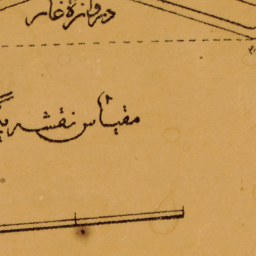 دروازهٔ غار
مقیاس نقشه